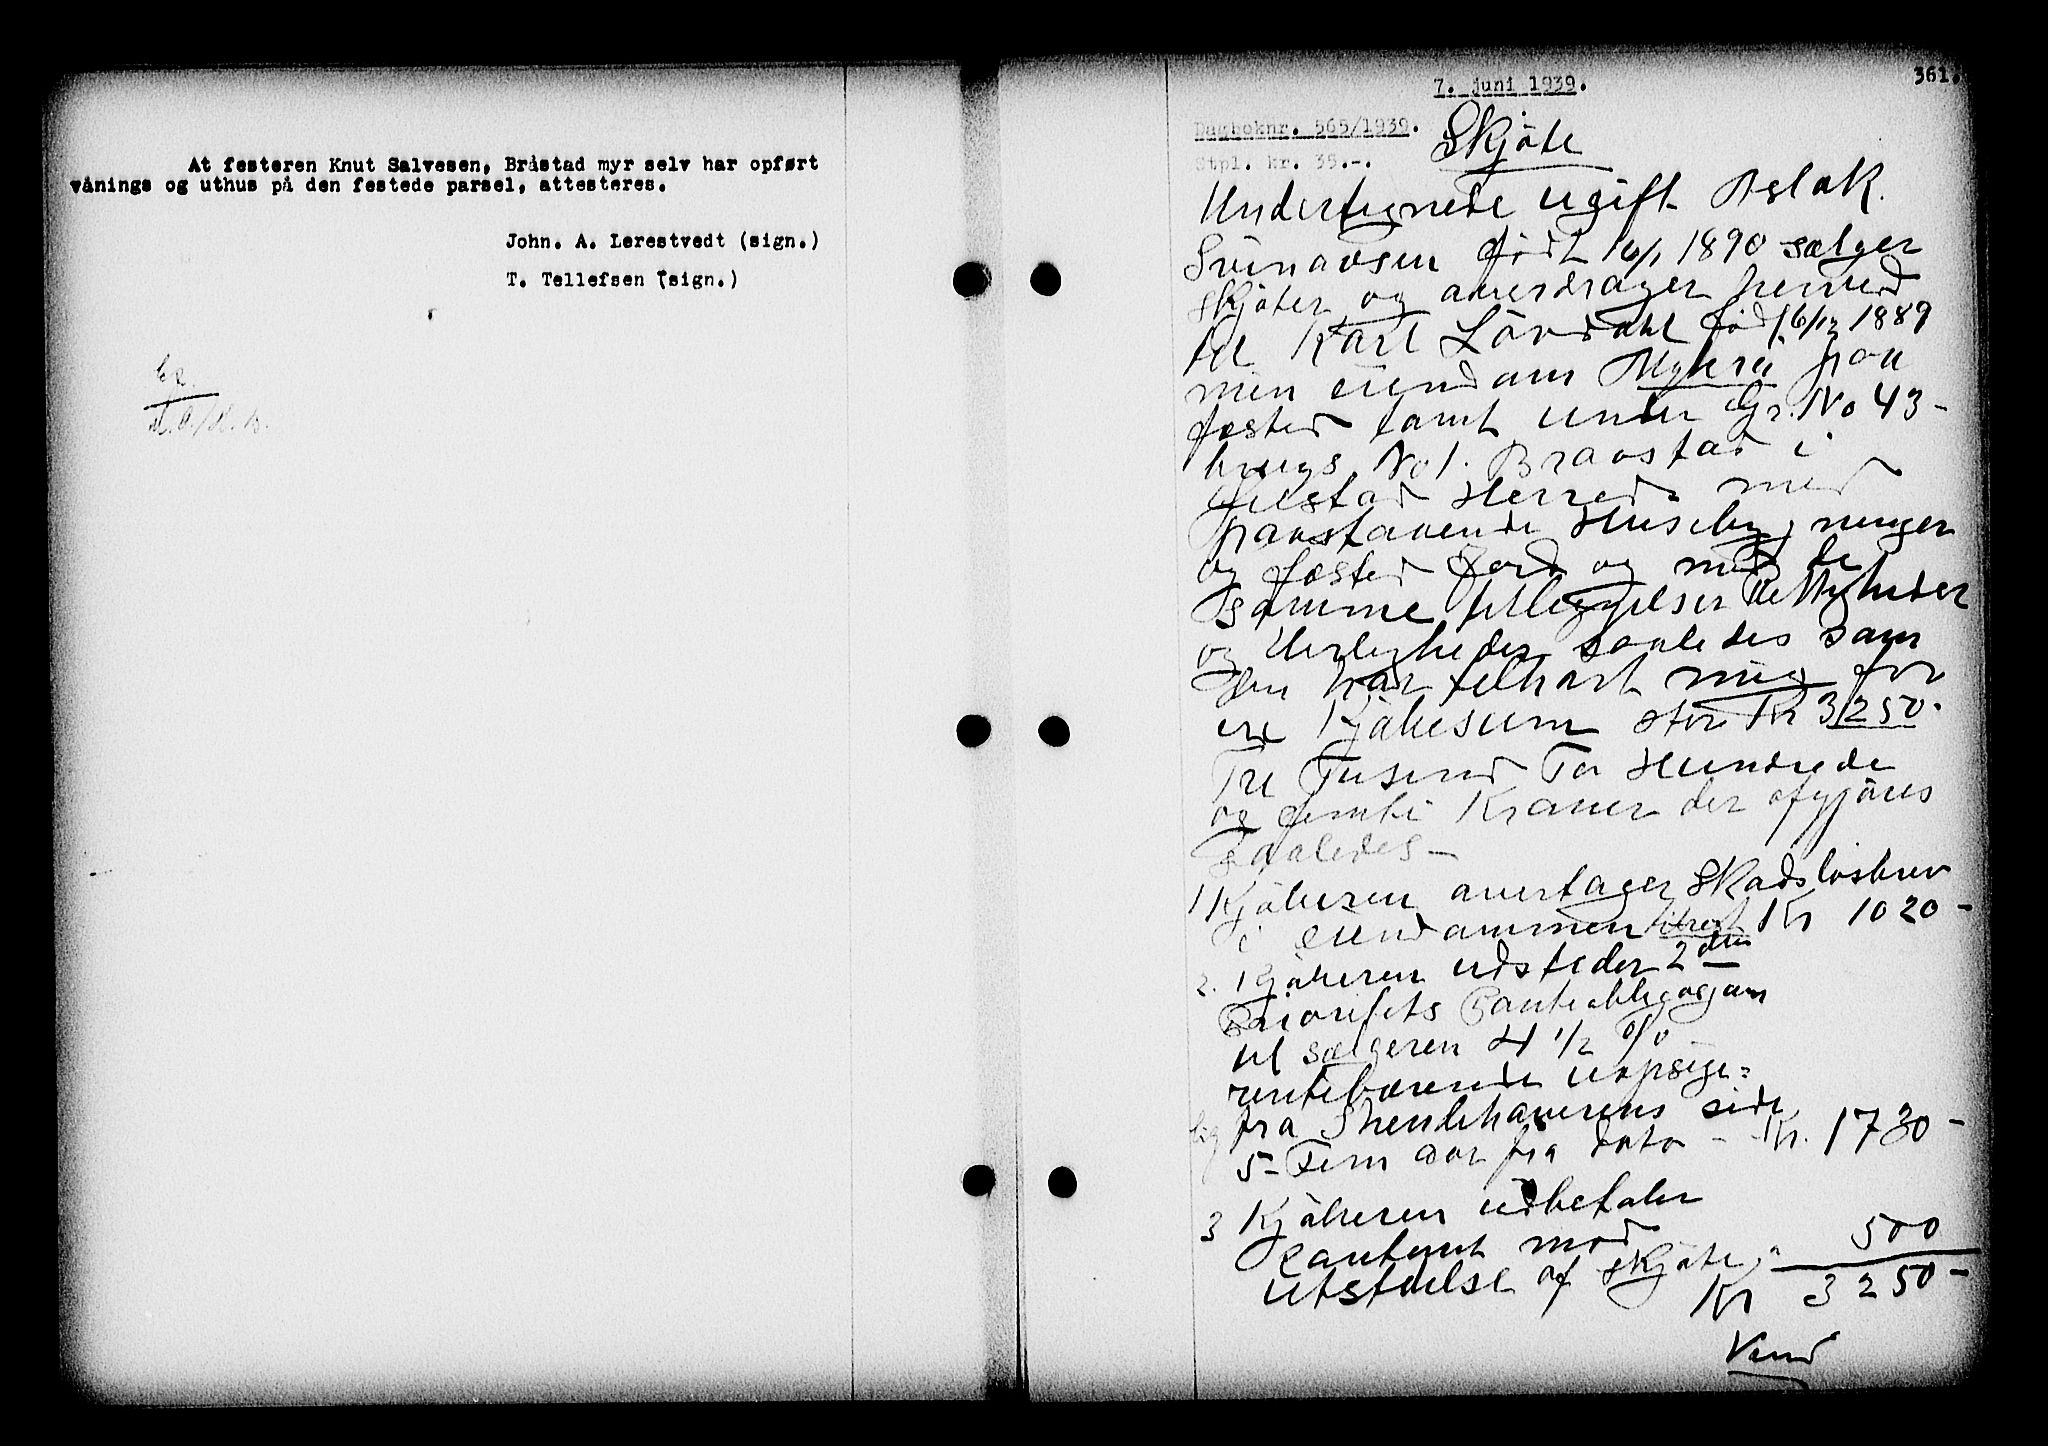 At festeren Knut Salvesen, Bråstad myr selv har opført
vånings og uthus på den festede parsel, attesteres.
John. A. Lerestvedt (sign.)
T. Tellefsen (sign.)
361.
7. juni 1939.
Dagboknr. 565/1939.
Stpl. kr. 35.-.
Skjöte
Undertegnede ugift Aslak
Svenavsen född 16/1 1890 sælger
skjöter og averdrager herved
til Karl Lövdahl född 16/12 1889
min eiendom paa
fæsted tamt under Gr. No 43-
brugs No 1. Braastad i
Öiestad Herred med
paastaaende Husebygninger
og fæsted Jord og med de
samme tilleggelser Rettigheder
og Herligheder saaledes som
den har tilhört mig for
en Kjöbesum stor Kr 3250.
Tre Tusend To Hundrede
og femti Kroner der afgjöres
saaledes-
1 Kjöberen overtager Skadslösbrev
i eiendommen Kr 1020-
2. Kjöberen udsteder 2den
Prioritets Panteobligasjon
til sælgeren 4 1/2 %
rentebærende uopsige=
lig fra Ihendehaverens side
5- Fem aar fra dato - Kr. 1730-
3 Kjöberen udbetaler
kontant mod
utstedelse af skjöte " 500
Kr 3250-
Vend